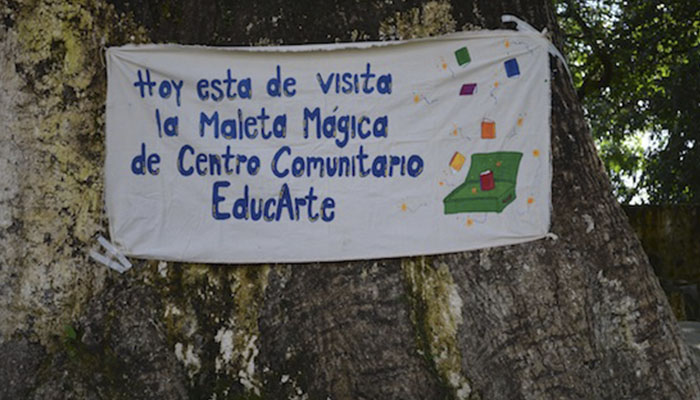 Hoy esta de visita
la Maleta Mágica
de Centro Comunitario
EducArte